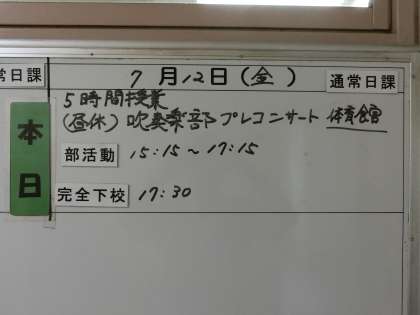 常日課 7月12日(金) 通常日課
本日
5時間授業
(昼休) 吹奏楽部プレコンサート 体育館
部活動 15:15~17:15
完全下校 17:30